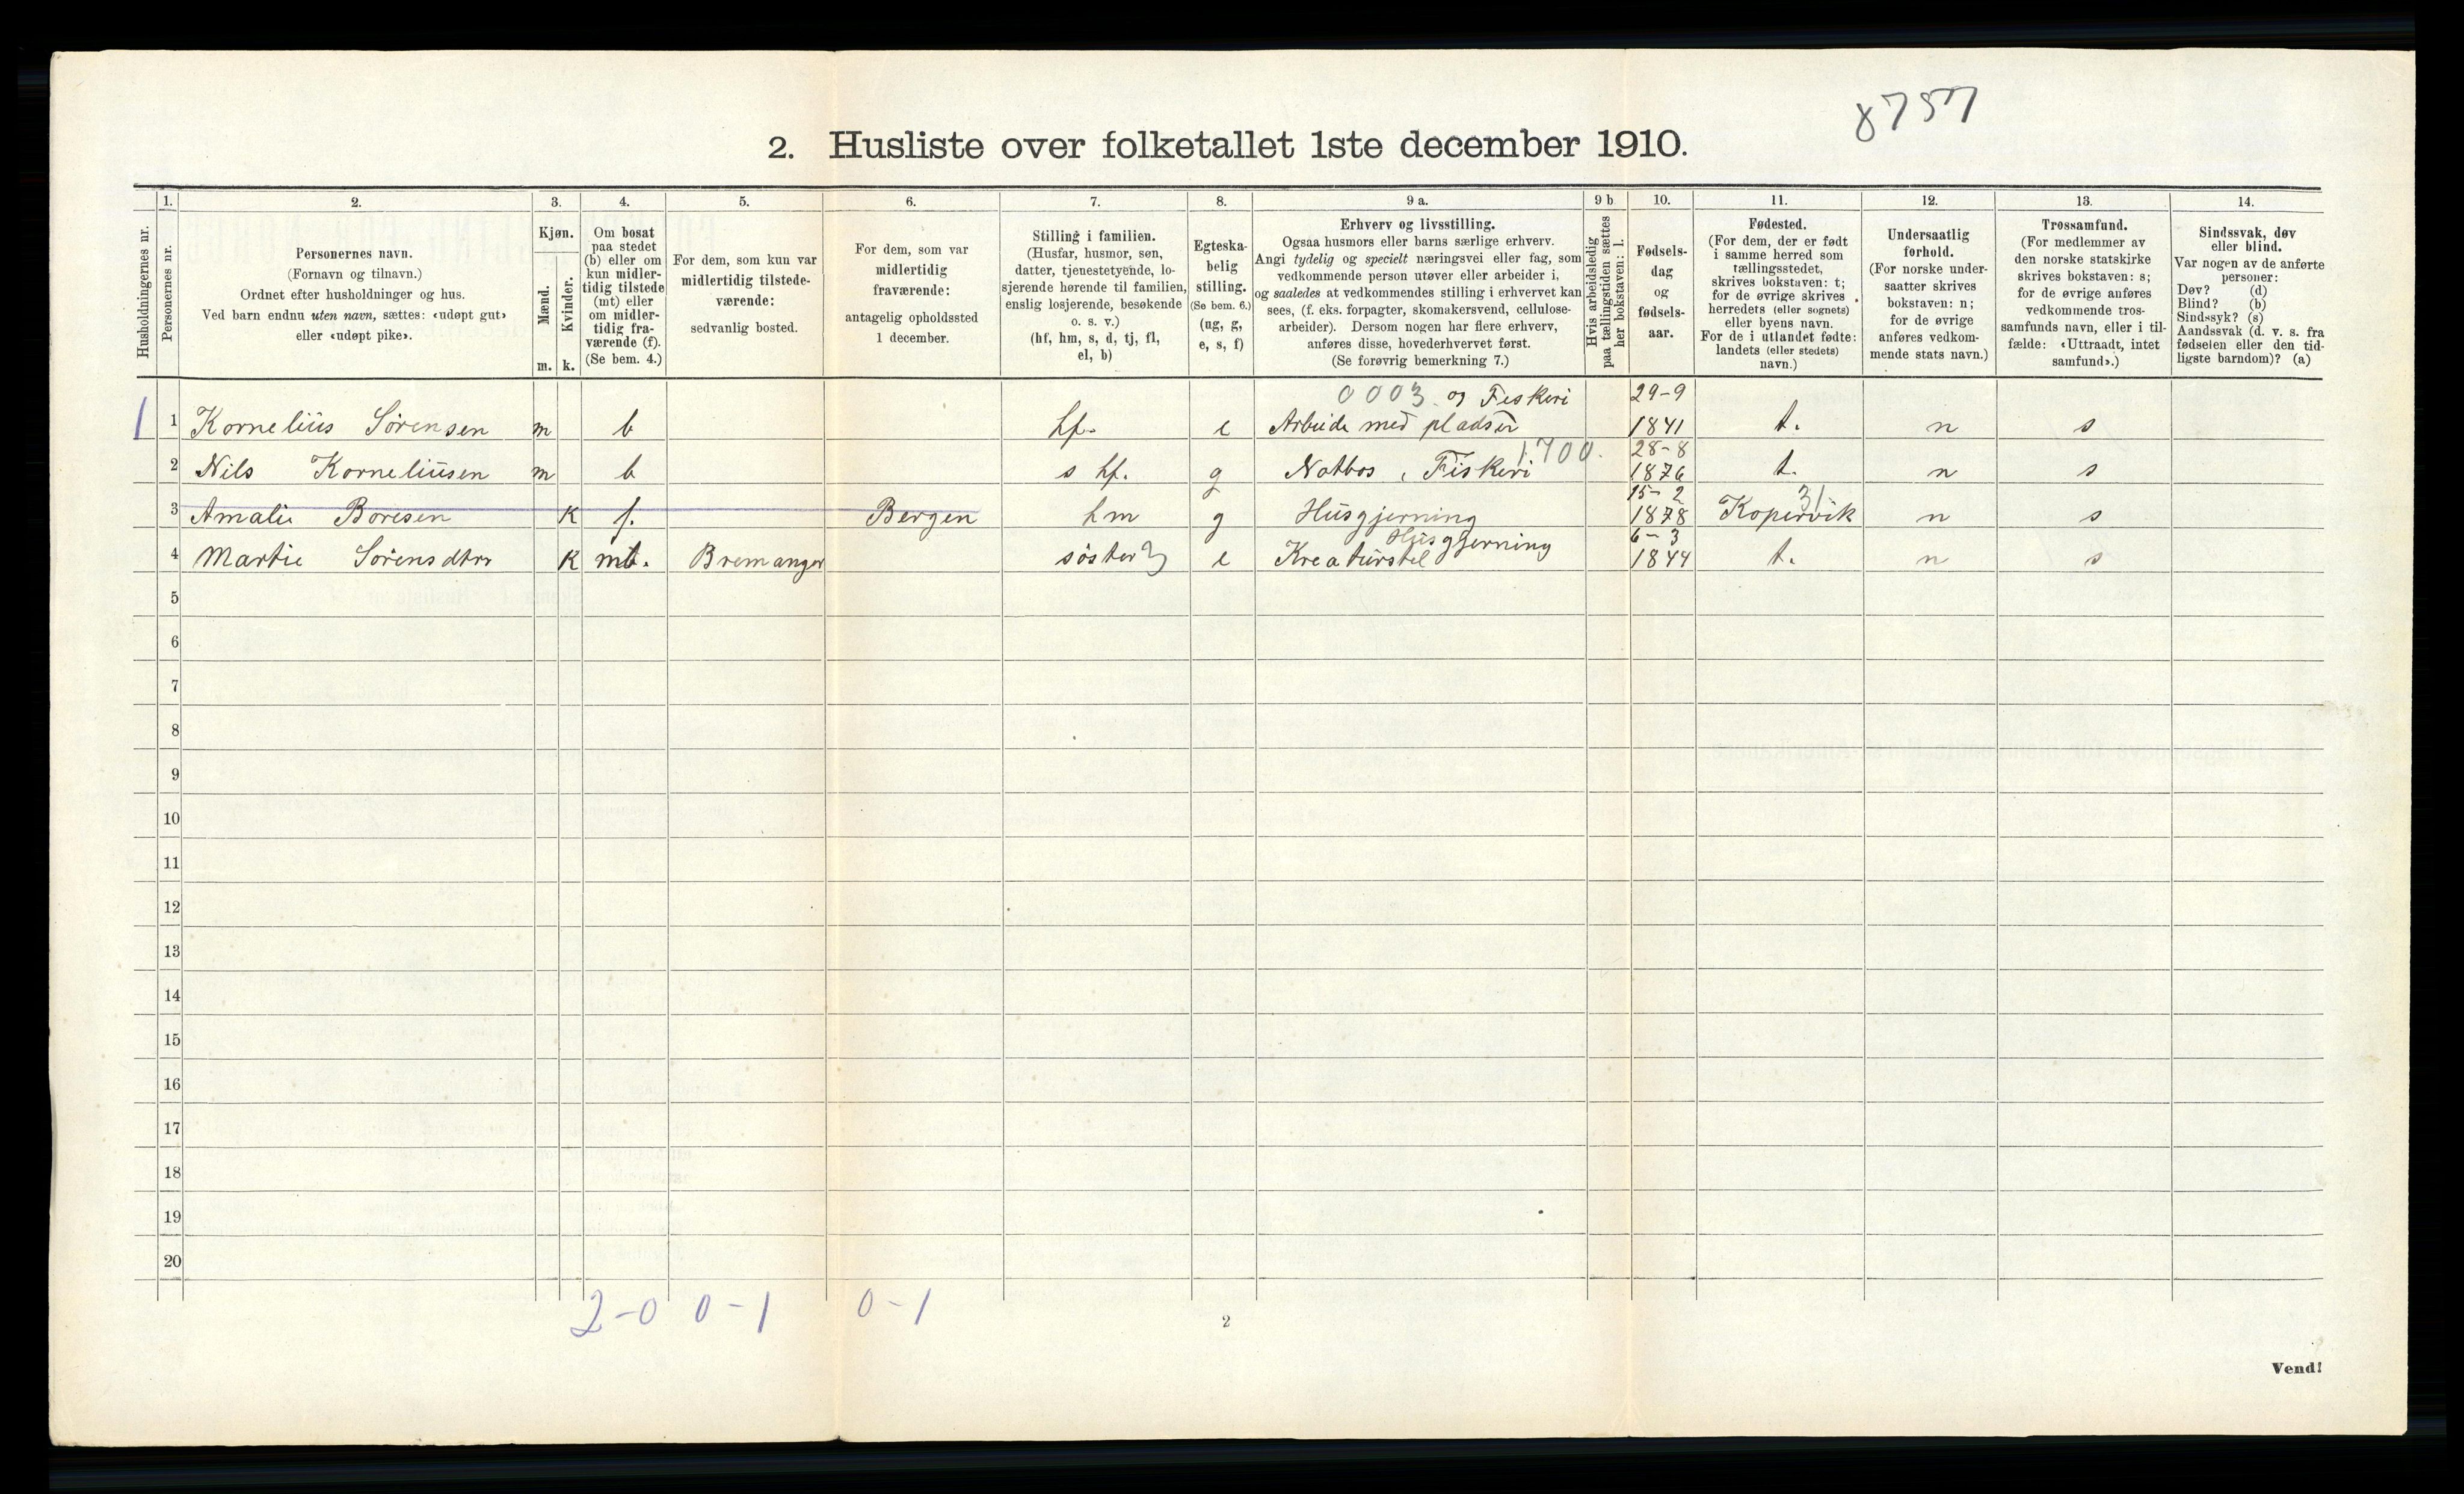 8757
2. Husliste over folketallet 1ste december 1910.
Husholdningernes nr.
1. Personernes nr.
2. Personernes navn.
(Fornavn og tilnavn.)
Ordnet efter husholdninger og hus.
Ved barn endnu uten navn, sættes: «udøpt gut»
eller «udøpt pike».
3. Kjøn.
Mænd. m.
Kvinder. k.
4. Om bosat
paa stedet
(b) eller om
kun midler-
tidig tilstede
(mt) eller
om midler-
tidig fra-
værende (f).
(Se bem. 4.)
5. For dem, som kun var
midlertidig tilstede-
værende:
sedvanlig bosted.
6. For dem, som var
midlertidig
fraværende:
antagelig opholdssted
1 december.
7. Stilling i familien.
(Husfar, husmor, søn,
datter, tjenestetyende, lo-
sjerende hørende til familien,
enslig losjerende, besøkende
o. s. v.)
(hf, hm, s, d, tj, fl,
el, b)
8. Egteska-
belig
stilling.
(Se bem. 6.)
(ug, g,
e, s, f)
9 a. Erhverv og livsstilling.
Ogsaa husmors eller barns særlige erhverv.
Angi tydelig og specielt næringsvei eller fag, som
vedkommende person utøver eller arbeider i,
og saaledes at vedkommendes stilling i erhvervet kan
sees, (f. eks. forpagter, skomakersvend, cellulose-
arbeider). Dersom nogen har flere erhverv,
anføres disse, hovederhvervet først.
(Se forøvrig bemerkning 7.)
9 b. Hvis arbeidsledig
paa tællingstiden sættes
her bokstaven: l.
10. Fødsels-
dag
og
fødsels-
aar.
11. Fødested.
(For dem, der er født
i samme herred som
tællingsstedet,
skrives bokstaven: t;
for de øvrige skrives
herredets (eller sognets)
eller byens navn.
For de i utlandet fødte:
landets (eller stedets)
navn.)
12. Undersaatlig
forhold.
(For norske under-
saatter skrives
bokstaven: n;
for de øvrige
anføres vedkom-
mende stats navn.)
13. Trossamfund.
(For medlemmer av
den norske statskirke
skrives bokstaven: s;
for de øvrige anføres
vedkommende tros-
samfunds navn, eller i til-
fælde: «Uttraadt, intet
samfund».)
14. Sindssvak, døv
eller blind.
Var nogen av de anførte
personer:
Døv? (d)
Blind? (b)
Sindssyk? (s)
Aandssvak (d. v. s. fra
fødselen eller den tid-
ligste barndom)? (a)
0003 og Fiskeri 29-9
1 1 Kornelius Sörensen m b hf. e Arbeide med pladsen 1841 t. n s
1700. 28-8
2 Nils Korneliusen m b s hf. g Notbas, Fiskeri 1876 t. n s
15-2 31
3 Amalie Boresen K f. Bergen hm g Husgjerning 1878 Kopervik n s
Husgjerning 6-3
4 Martie Sörensdtr K mt. Bremanger söster 3 e Kreaturstel 1844 t. n s
5
6
7
8
9
10
11
12
13
14
15
16
17
18
19
20
2-0 0-1 0-1
2
Vend!